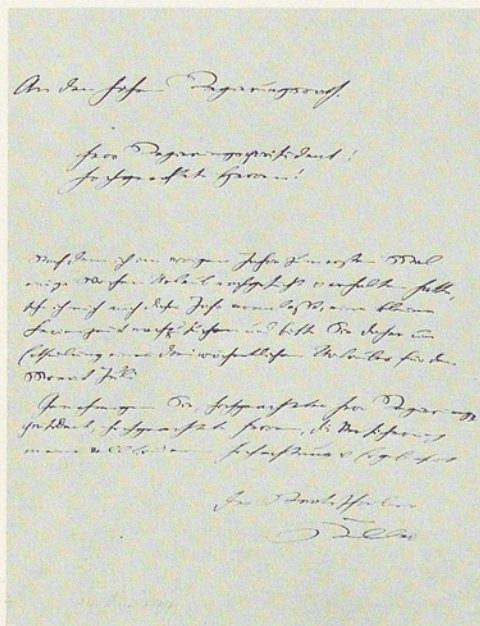 An den hohen Regierungsrath.
Herr Regierungspräsident!
Hochgeachtete Herren!
Nachdem ich im vorigen Jahre zum ersten Mal
einige Wochen Urlaub nachgesucht & erhalten hatte,
sehe ich mich auch dieses Jahr veranlaßt, eine kleine
Ferienzeit nachzusuchen und bitte Sie daher um
Ertheilung eines dreiwöchentlichen Urlaubes für den
Monat Juli.
Genehmigen Sie, hochgeachteter Herr Regierungs
präsident, hochgeachtete Herren, die Versicherung
meiner vollkommenen Hochachtung & Ergebenheit
Der Staatsschreiber
Keller